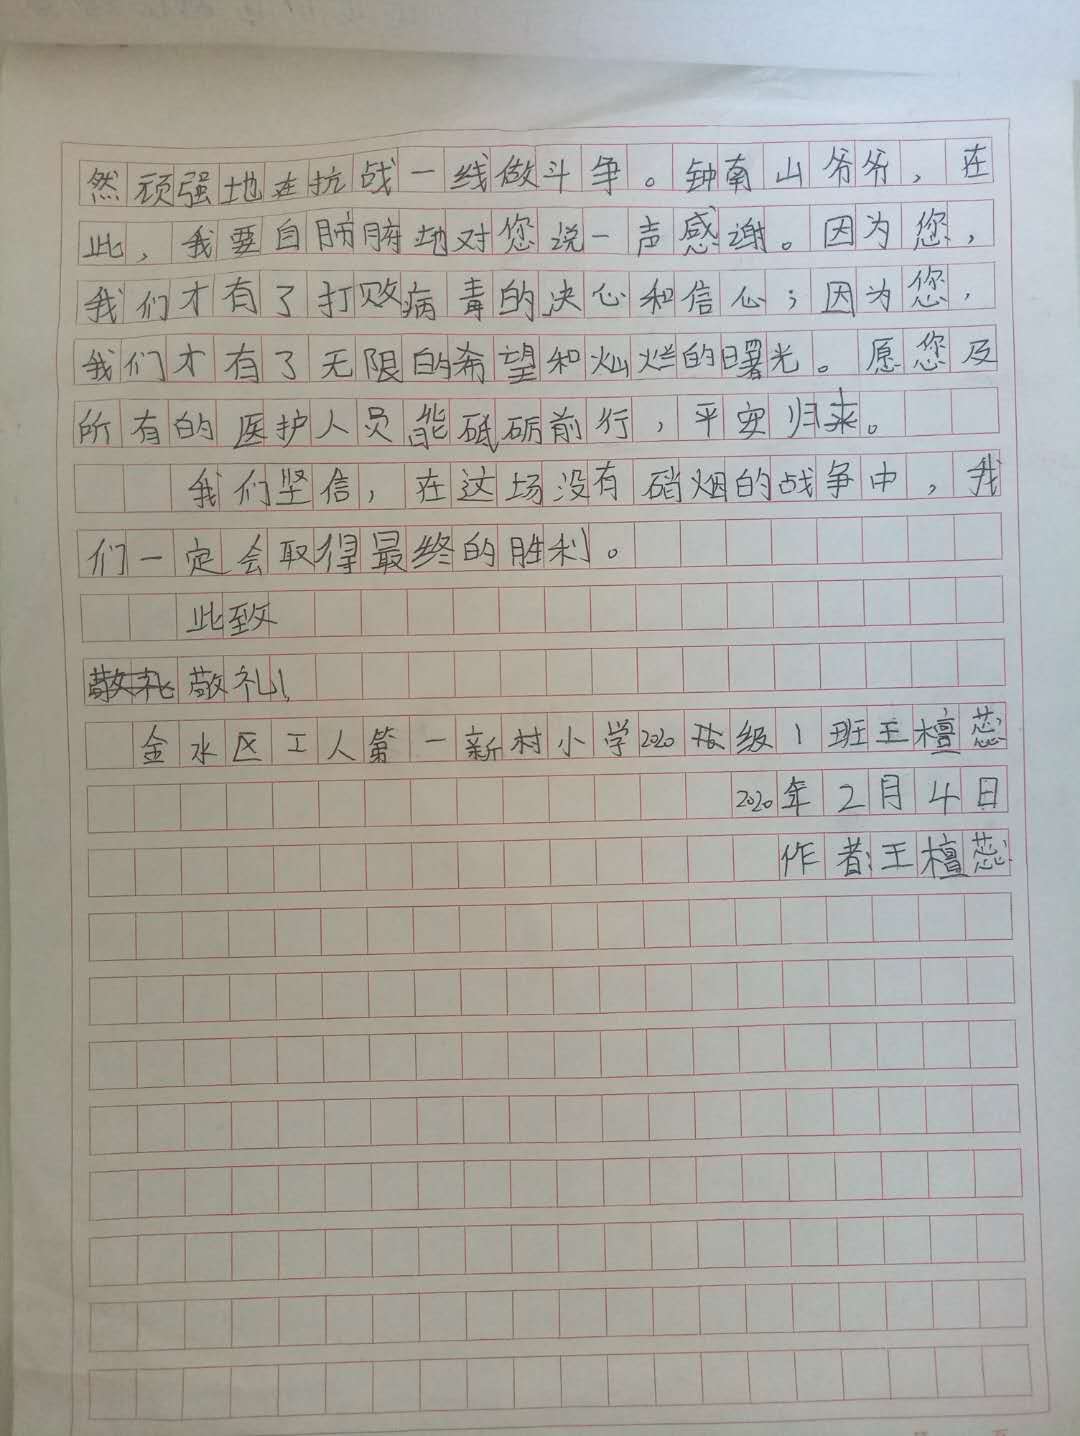 然顽强地在抗战一线做斗争。钟南山爷爷，在
此，我要自肺腑地对您说一声感谢。因为您，
我们才有了打败病毒的决心和信心；因为您，
我们才有了无限的希望和灿烂的曙光。愿您及
所有的医护人员能砥砺前行，平安归来。
我们坚信，在这场没有硝烟的战争中，我
们一定会取得最终的胜利。
此致
敬礼 敬礼！
金水区工人第一新村小学2020级1班王檀蕊
2020年2月4日
作者：王檀蕊